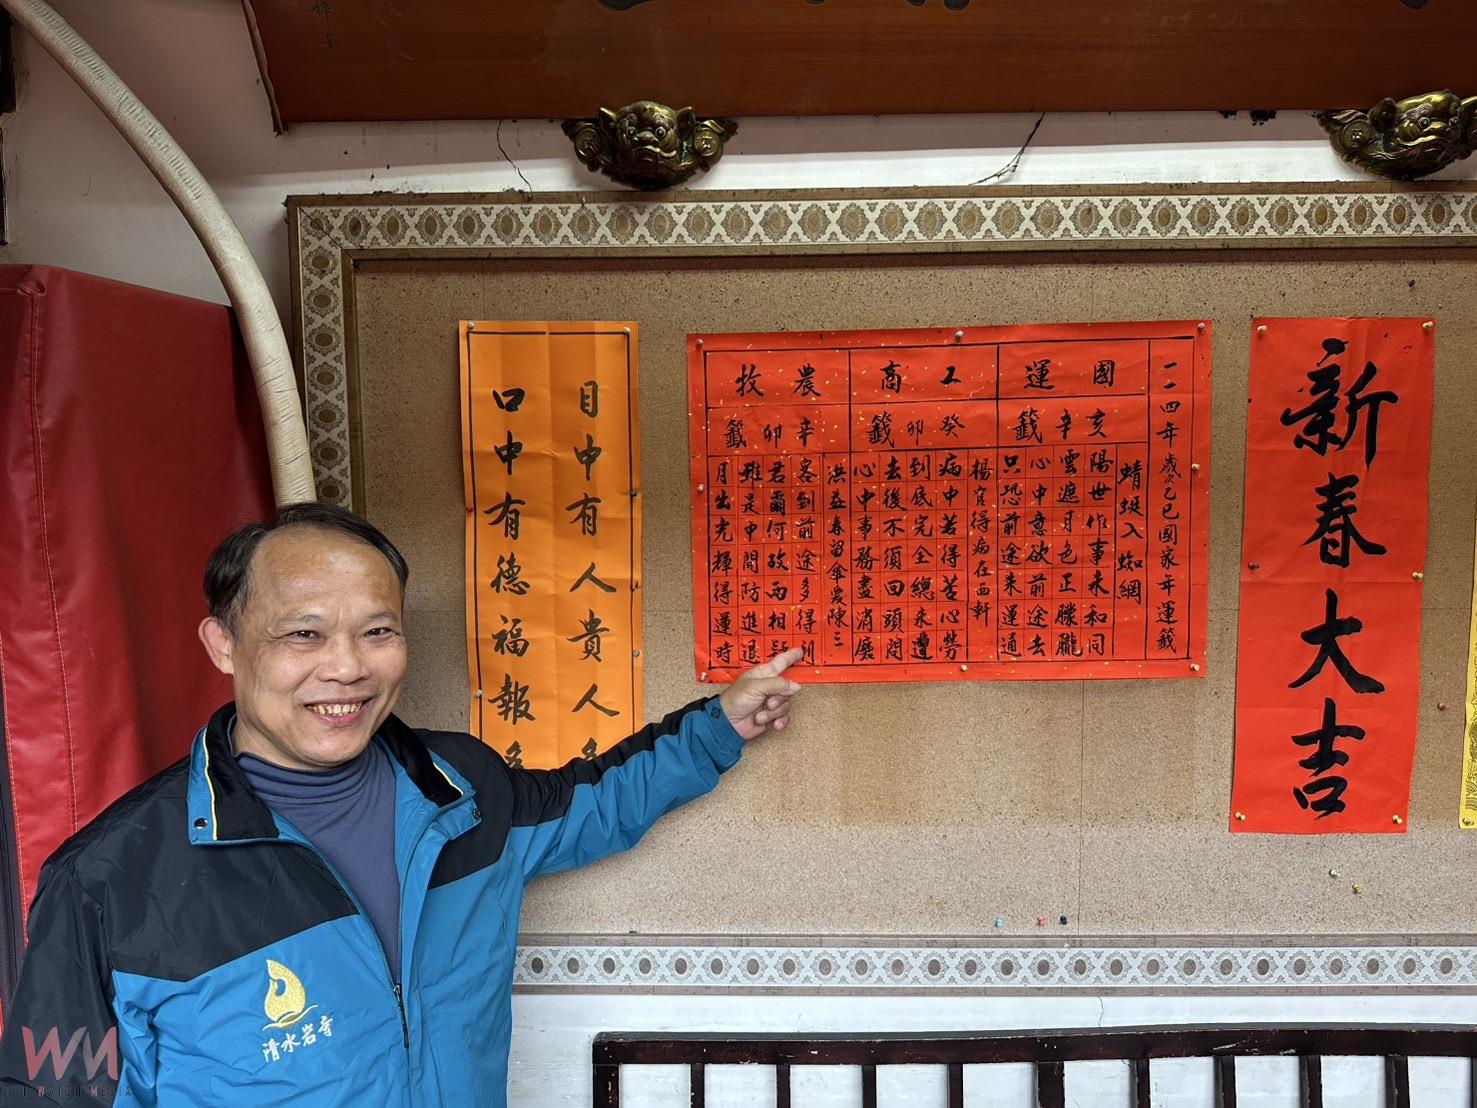 新春大吉
一一四年歲次乙巳國家年運籤
國運
亥辛籤
蜻蜓入蜘網
陽世作事未和同
雲遮月色正朦朧
心中意欲前途去
只恐前途未運通
工商
癸卯籤
楊官得病在西軒
病中若得苦心勞
到底完全總未遭
去後不須回頭問
心中事務盡消磨
農牧
辛卯籤
洪益春留傘愛陳三
客到前途多得利
君爾何故兩相疑
雖是中間防進退
月出光輝得運時
目中有人貴人多
口中有德福報多
清水岩寺
WM
THE WATCH MEDIA